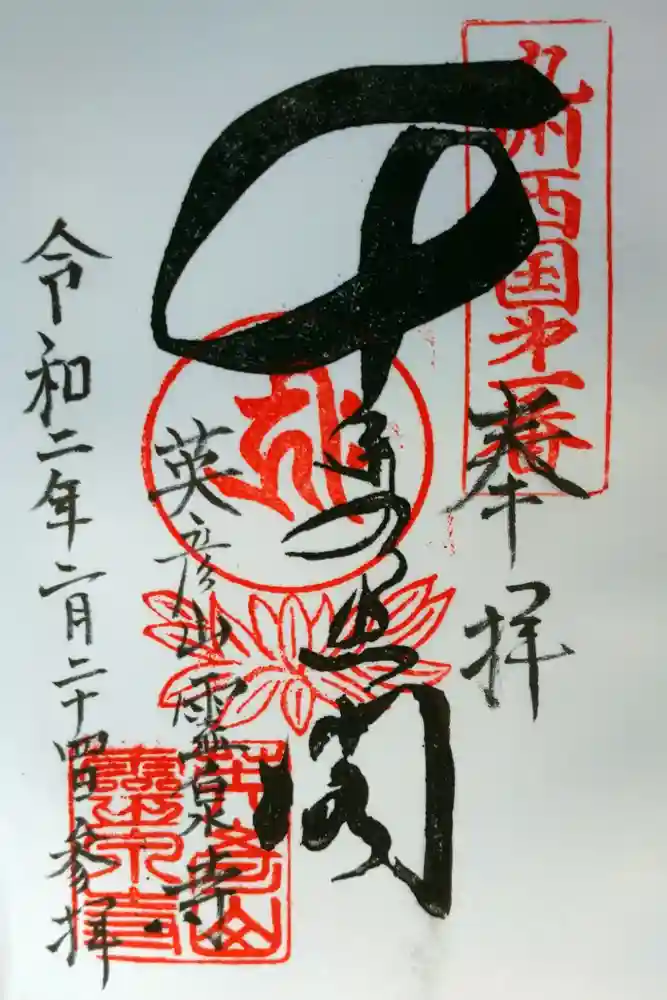 九州西国第一番
奉拝
大悲閣
英彦山霊泉寺
令和二年二月二十四日参拝
英彦山霊泉寺